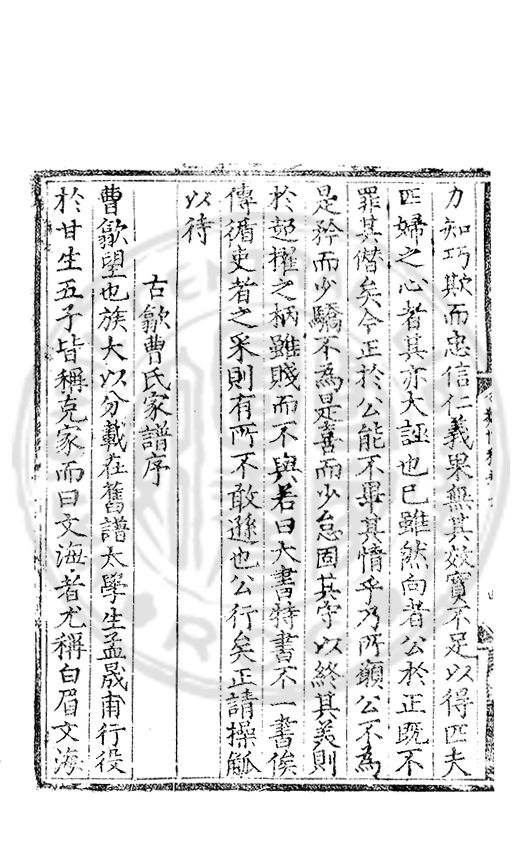 力知巧欺而忠信仁義果無其效實不足以得匹夫
匹婦之心者其亦大誣也已雖然向者公於正既不
罪其僭矣今正於公能不畢其情乎乃所願公不為
是矜而少驕不為是喜而少怠固其守以終其美則
於超擢之柄雖賤而不與若曰大書特書不一書俟
傳循吏者之采則有所不敢遜也公行矣正請操觚
以待
古歙曹氏家譜序
曹歙望也族大以分載在舊譜太學生孟晟甫行役
於甘生五子皆稱克家而曰文海者尤稱白眉文海